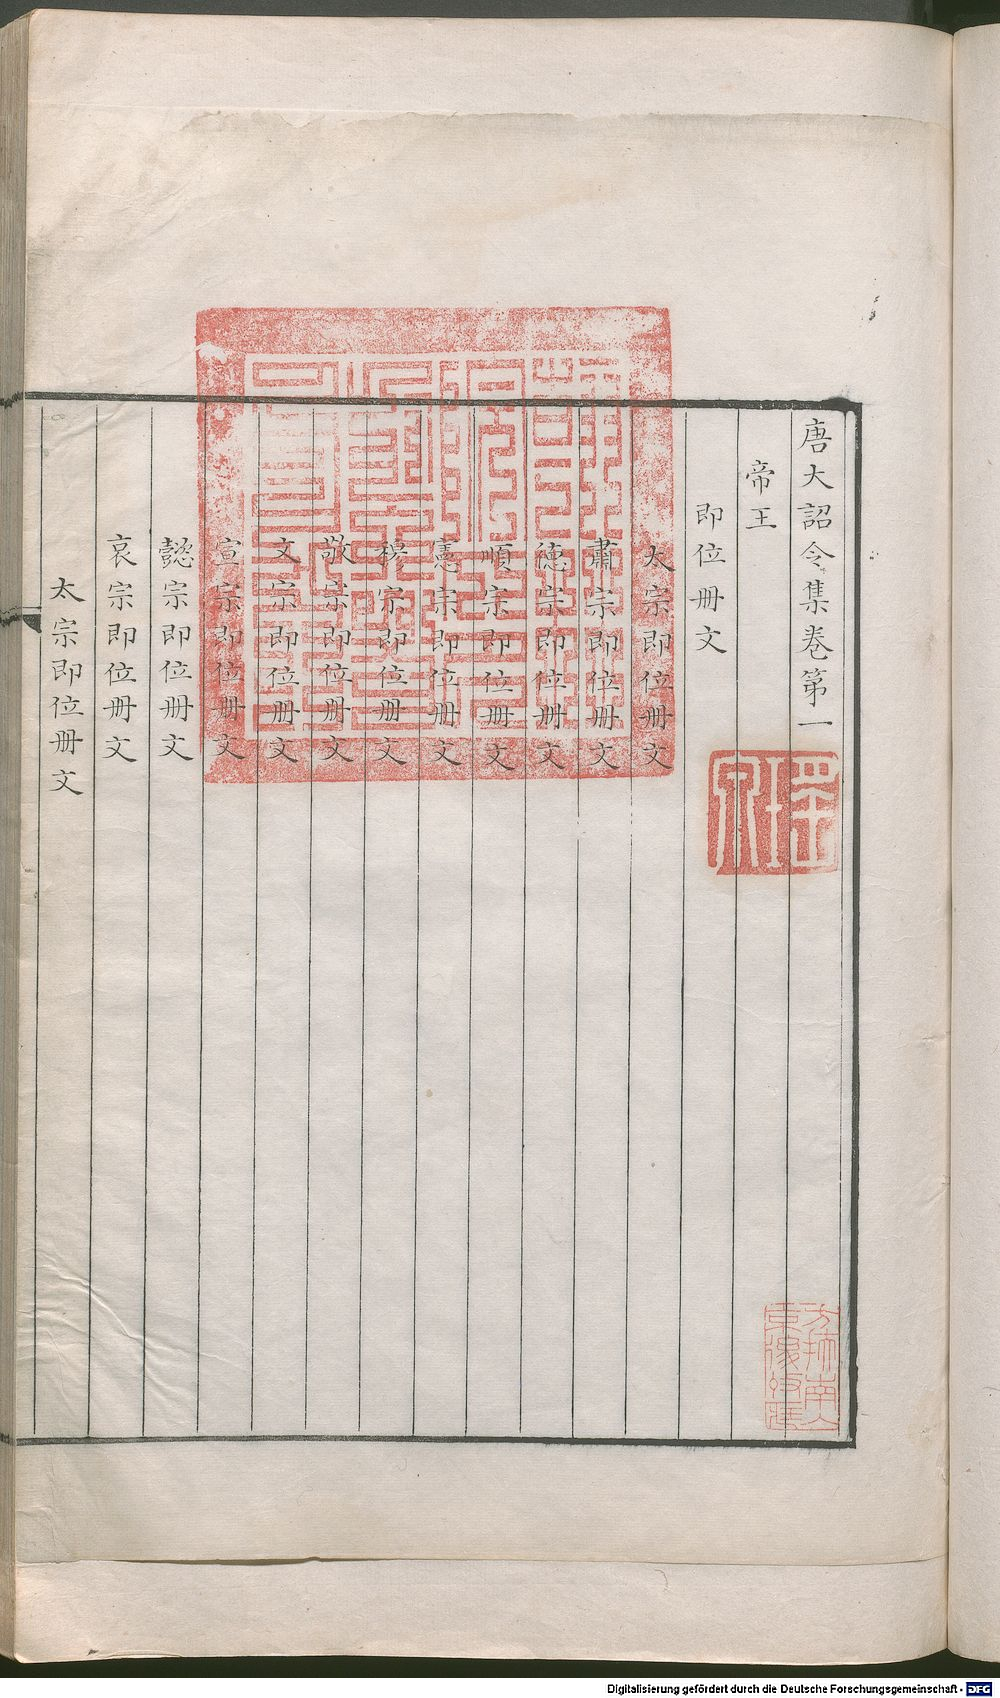 唐大詔令集卷第一
帝王
即位冊文
太宗即位冊文
肅宗即位冊文
德宗即位冊文
順宗即位冊文
憲宗即位冊文
穆宗即位冊文
敬宗即位冊文
文宗即位冊文
宣宗即位冊文
懿宗即位冊文
哀宗即位冊文
太宗即位冊文
Digitalisierung gefördert durch die Deutsche Forschungsgemeinschaft - DFG